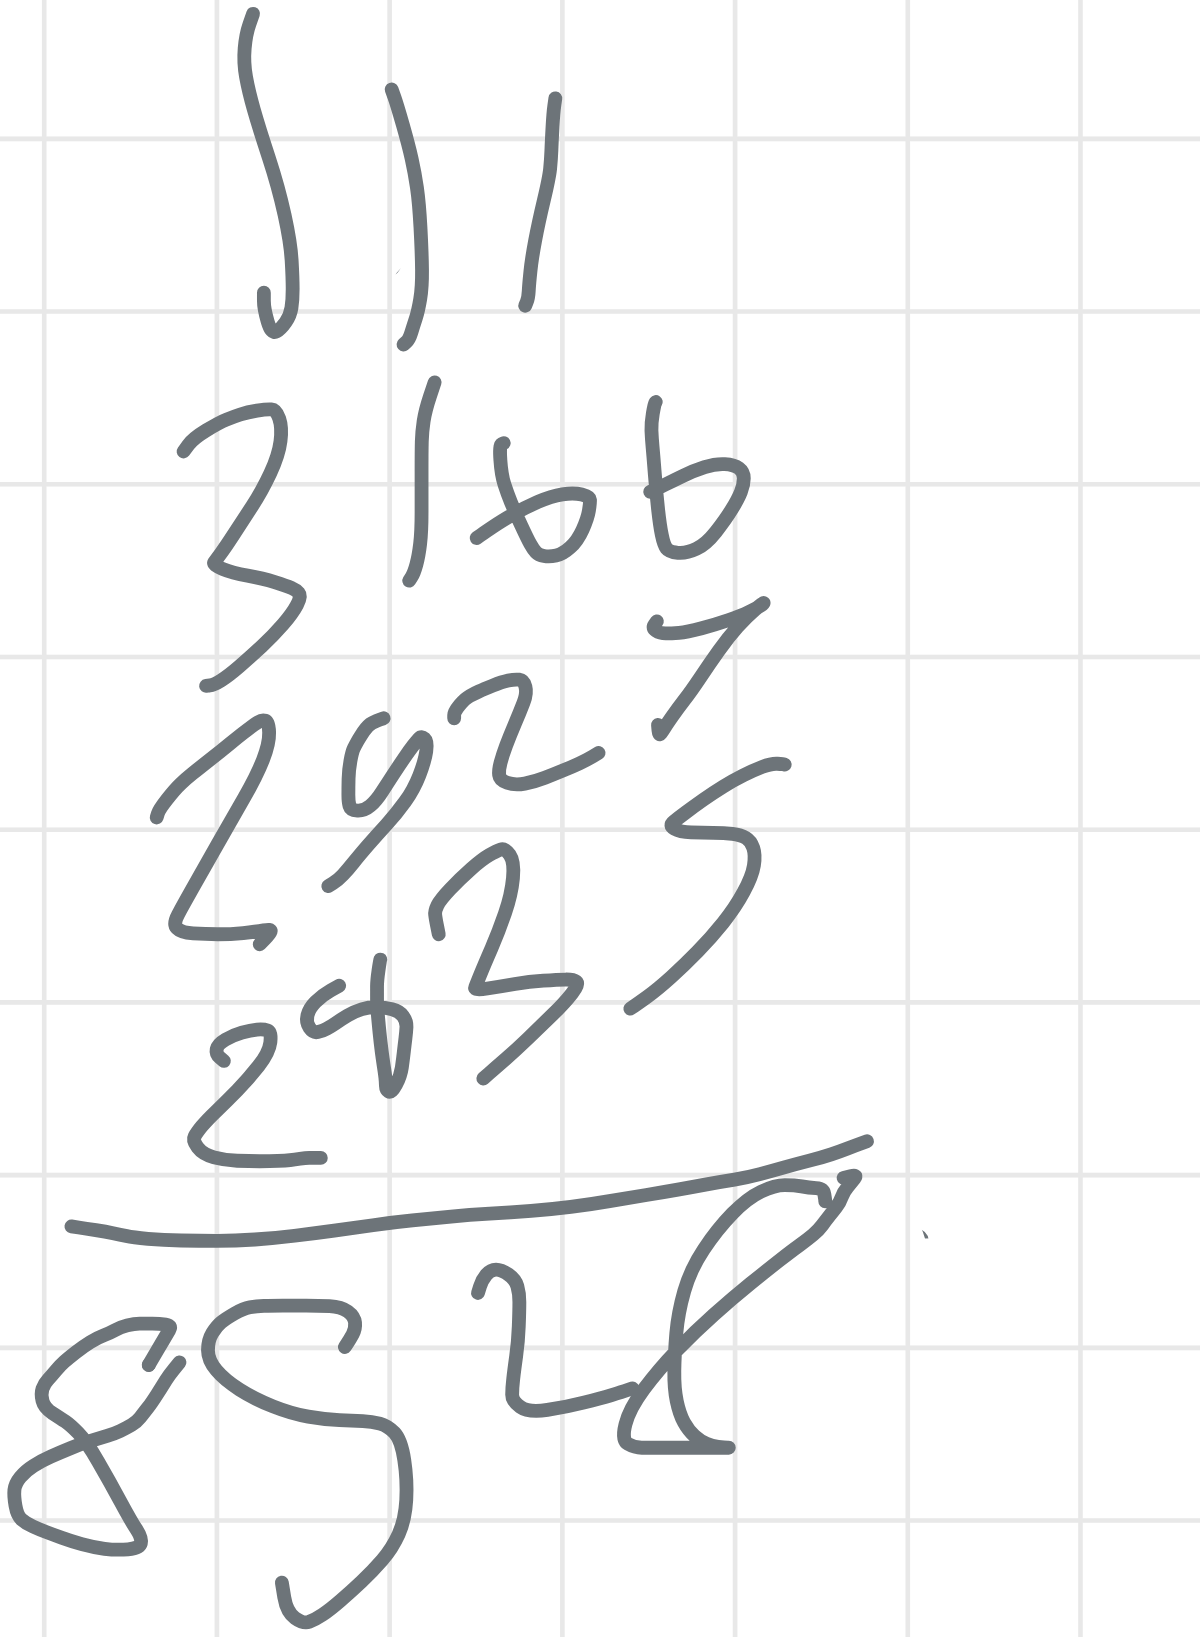 1 1 1
3166
2927
2435
8528